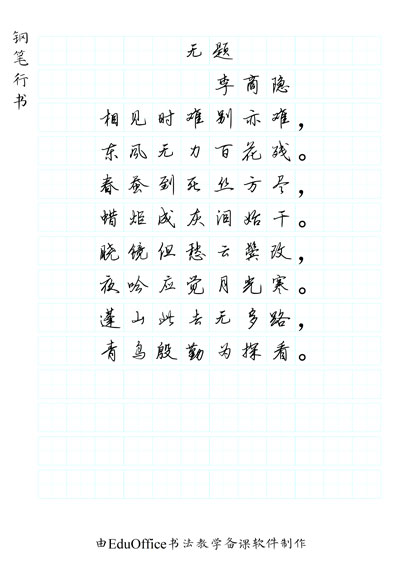 钢笔行书
无题
李商隐
相见时难别亦难，
东风无力百花残。
春蚕到死丝方尽，
蜡炬成灰泪始干。
晓镜但愁云鬓改，
夜吟应觉月光寒。
蓬山此去无多路，
青鸟殷勤为探看。
由EduOffice书法教学备课软件制作